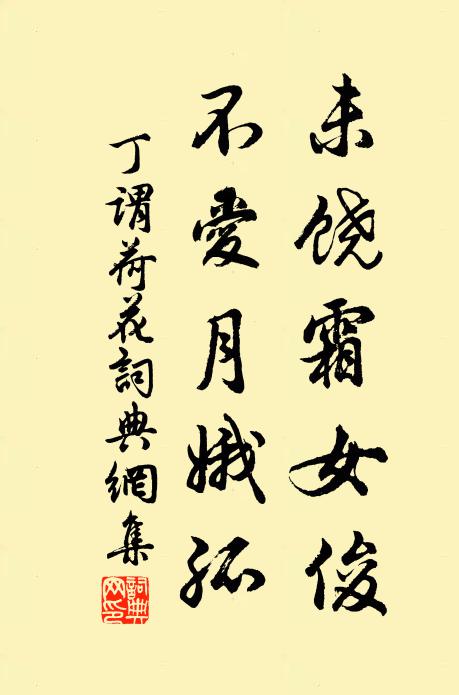 未饶霜女俊
不愛月娥孤
丁謂荷花詞典網集
詞典网印